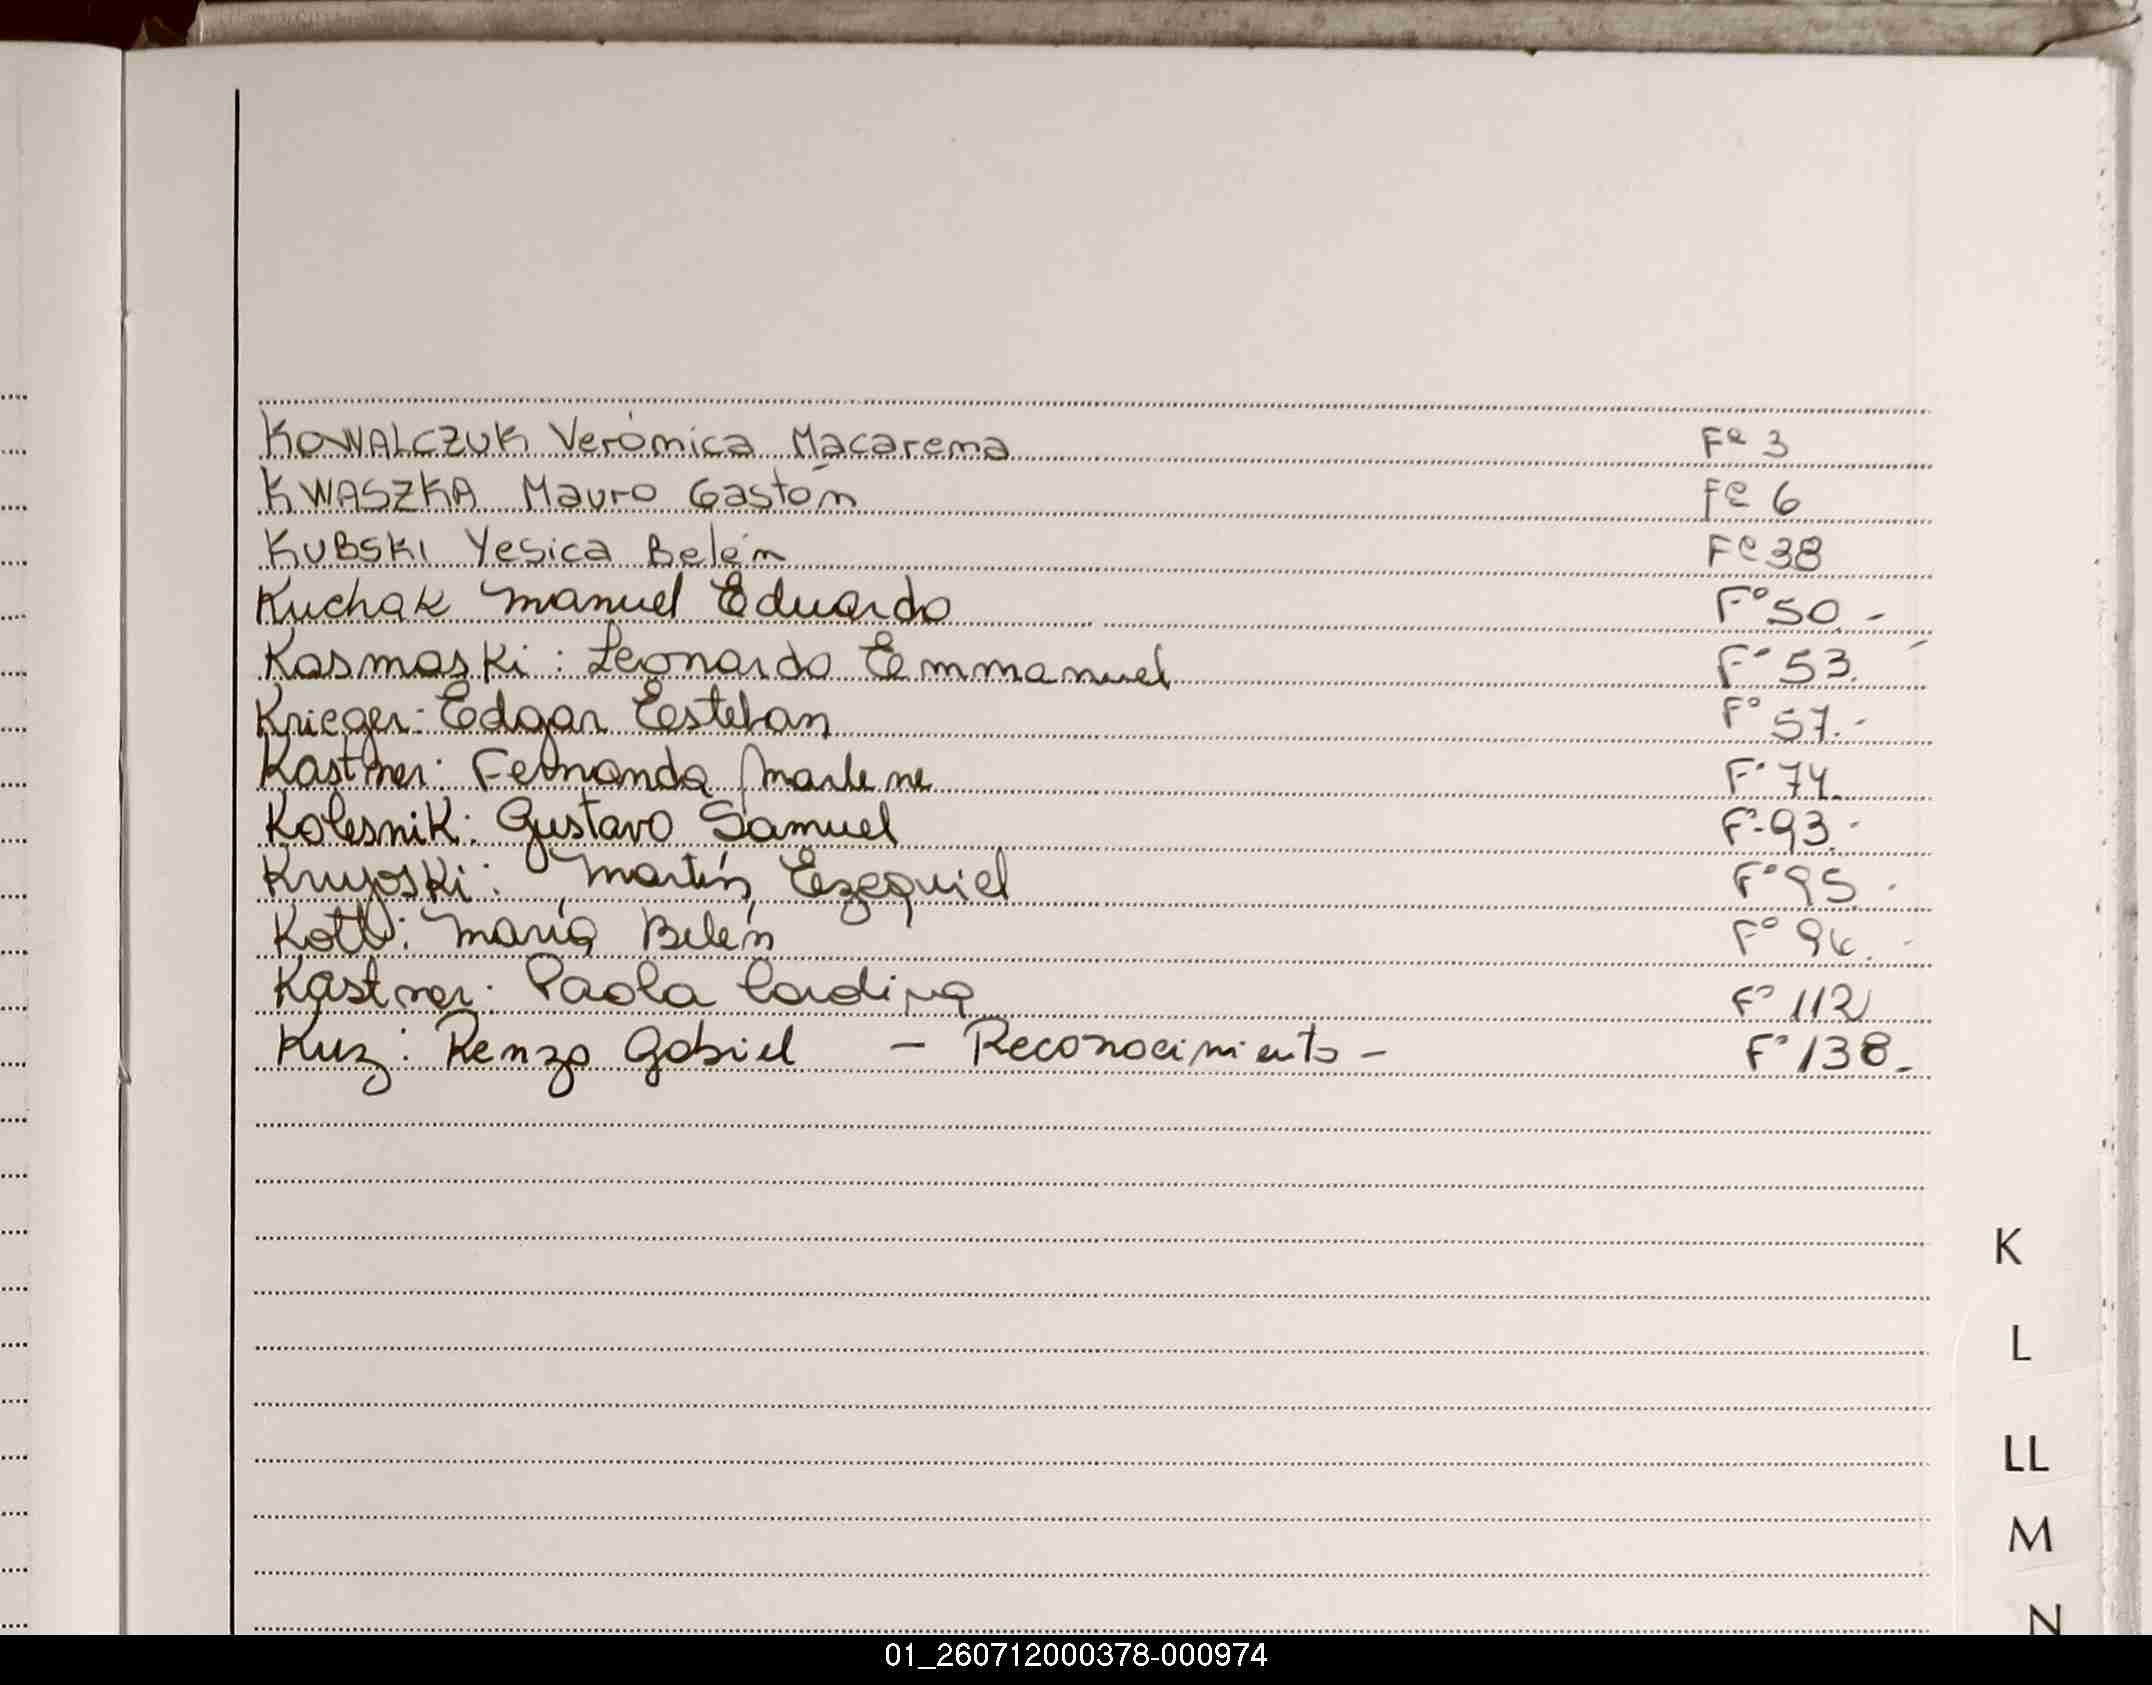 KOWALCZUK Verónica Macarena Fº 3
KWASZKA Mauro Gastón Fº 6
KUBSKI Yesica Belén Fº 38
Kuchak Manuel Eduardo Fº 50.-
Kosmoski: Leonardo Emmanuel Fº 53.
Krieger: Edgar Esteban Fº 57.-
Kastner: Fernanda Marlene Fº 74.
Kolesnik: Gustavo Samuel Fº 93.-
Kruyoski: Martín Ezequiel Fº 95.
María Belén Fº
Kastner: Paola Fº 112
Kuz: Renzo Gabriel - Reconocimiento - Fº 138.-
K
L
LL
M
N
01_260712000378-000974